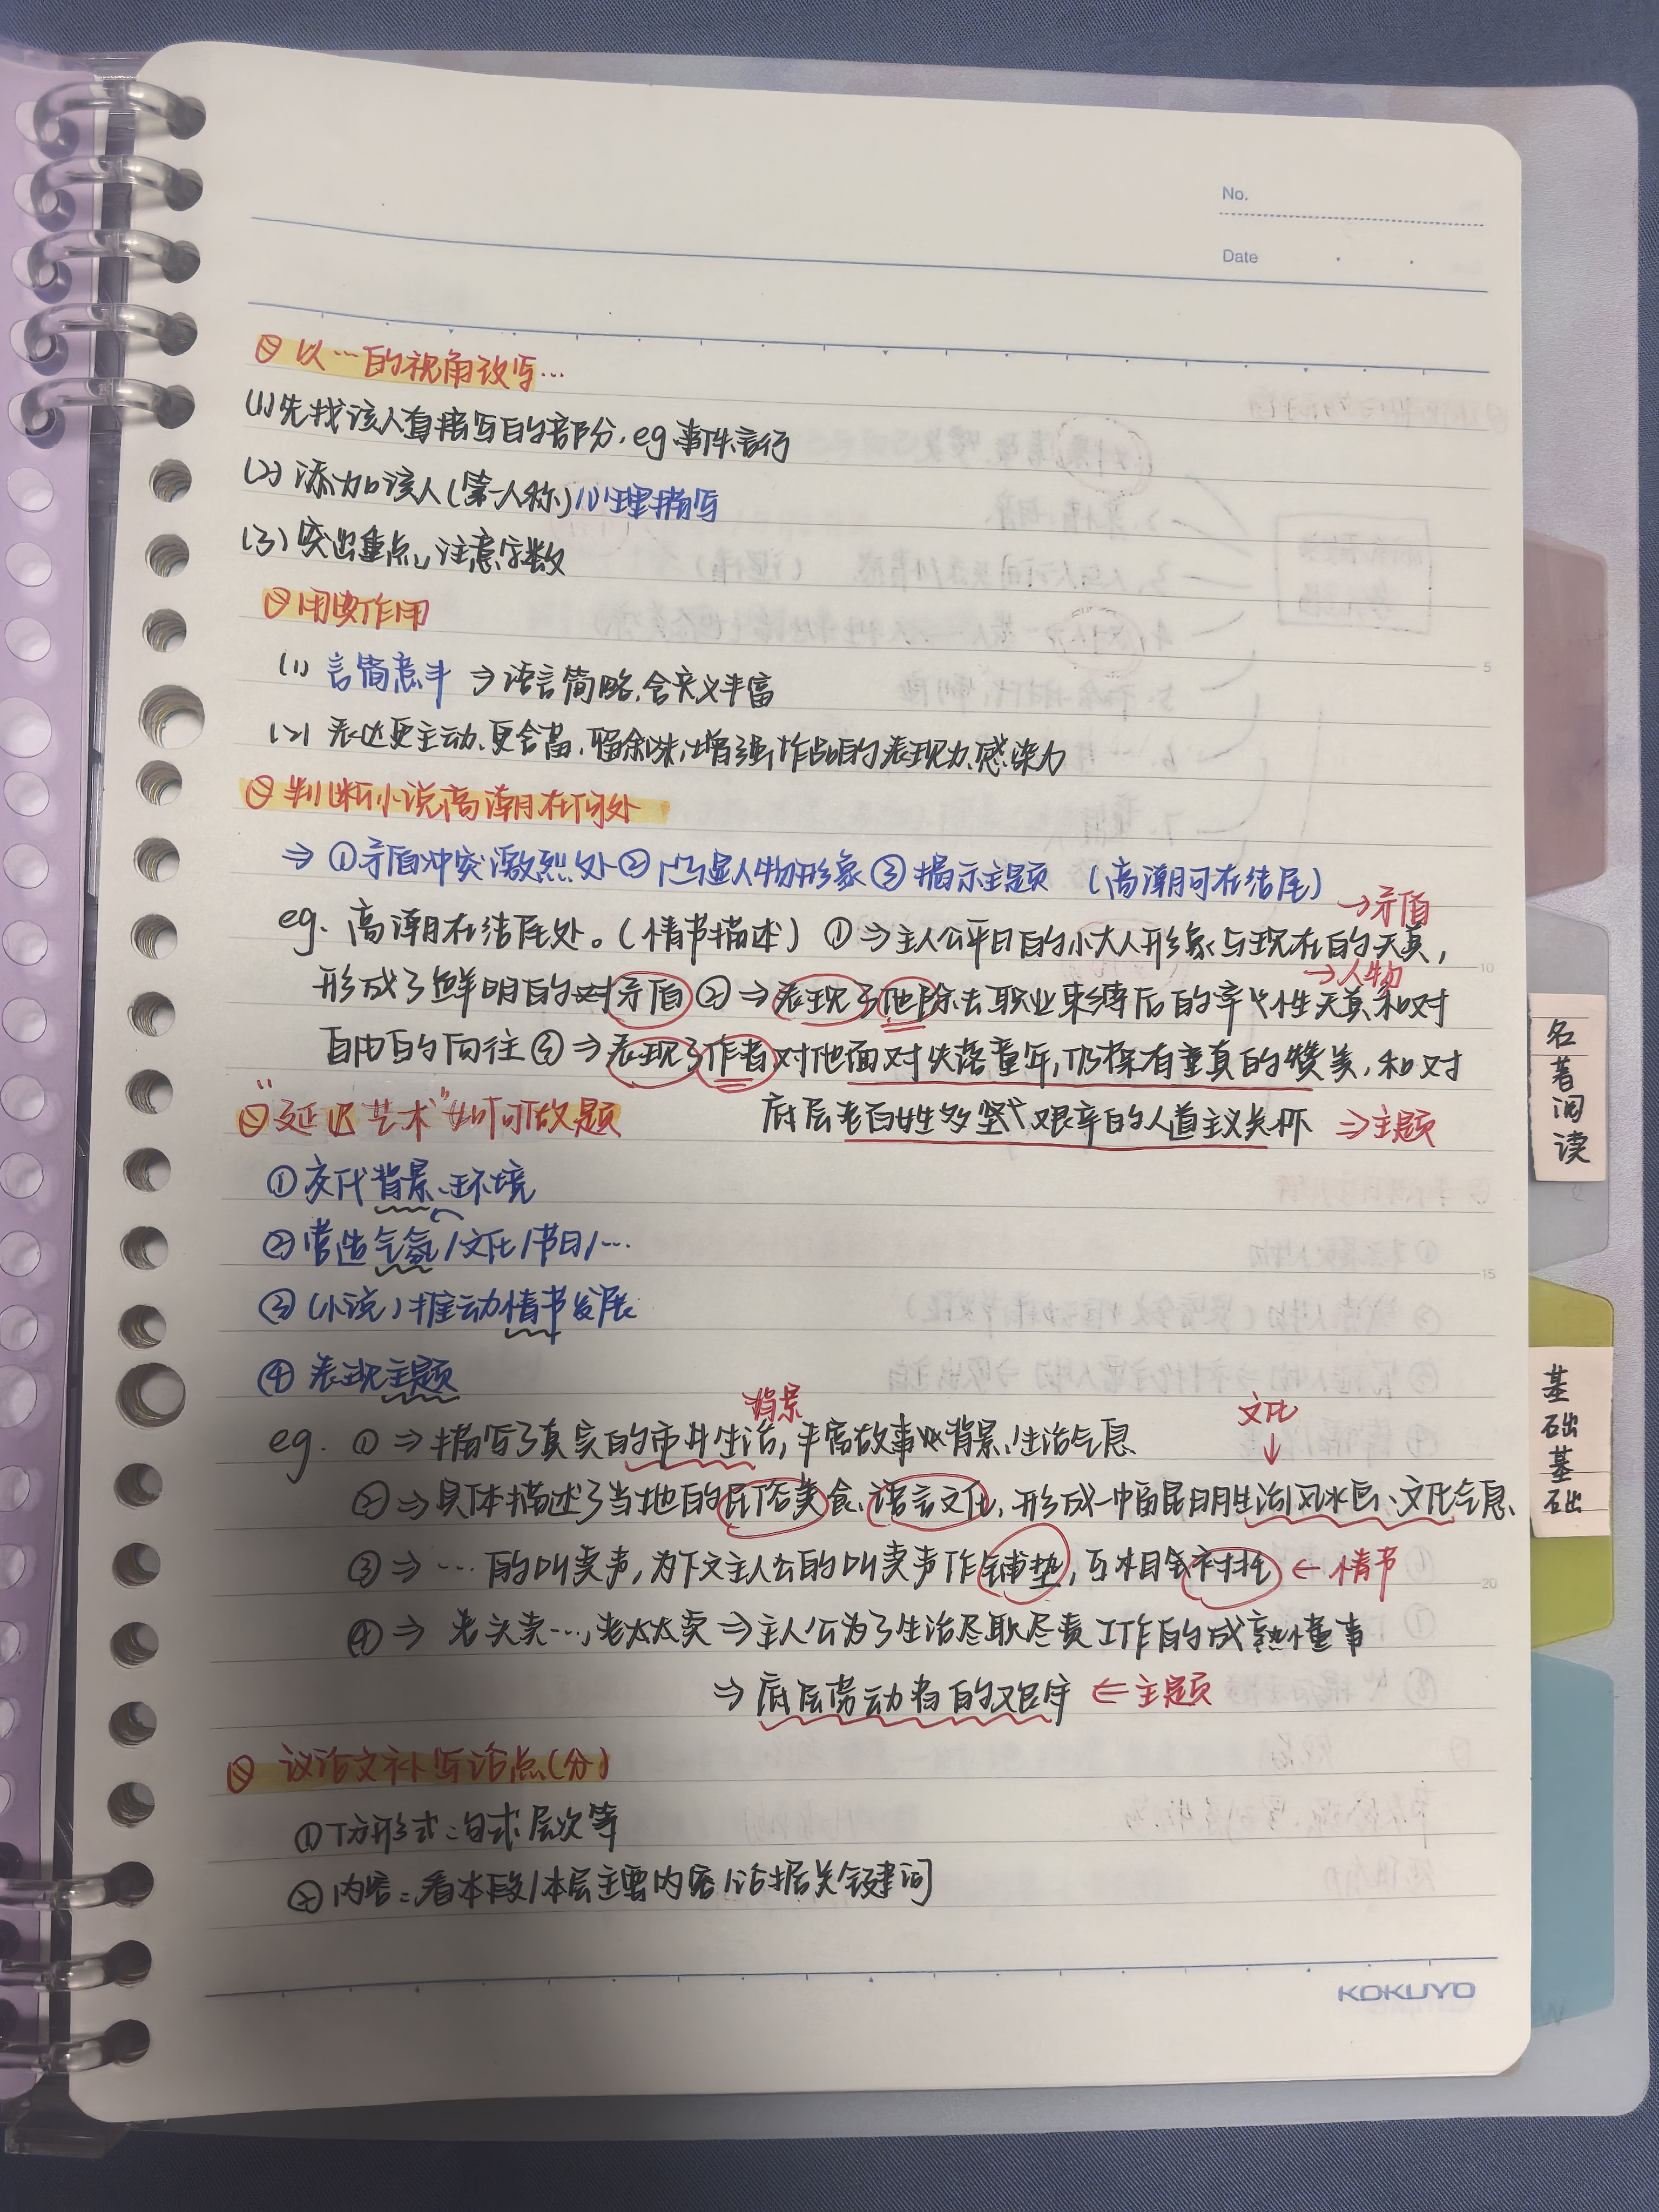 No.
Date
以…的视角改写…
(1) 先找该人直接写的部分, eg 事件、言行
(2) 添加该人(第一人称)心理描写
(3) 突出重点, 注意字数
用典作用
(1) 言简意丰 ⇒ 语言简略, 含义丰富
(2) 表达更主动、更含蓄, 留余味, 增强作品的表现力、感染力
判断小说高潮在何处
⇒ ①矛盾冲突激烈处 ②凸显人物形象 ③揭示主题 (高潮可在结尾)
→矛盾
eg. 高潮在结尾处。(情节描述) ① ⇒ 主人公平日的小大人形象与现在的天真,
→人物
形成了鲜明的矛盾 ② ⇒ 表现了他除去职业束缚后的率性天真和对
自由的向往 ③ ⇒ 表现了作者对他面对失落童年, 仍保有童真的赞美, 和对
底层老百姓艰辛的人道主义关怀 ⇒主题
“延迟艺术”如何做题
①交代背景、环境
②营造气氛/文化/节日/…
③(小说)推动情节发展
④表现主题
背景
文化
eg. ① ⇒ 描写了真实的市井生活, 丰富故事背景、生活气息
② ⇒ 具体描述了当地的民俗美食、语言文化, 形成一幅昆明生活风水色、文化气息
③ ⇒ …的叫卖声, 为下文主人公的叫卖声作铺垫, 互相衬托 ← 情节
④ ⇒ 老头卖…, 老太太卖 ⇒ 主人公为了生活尽职尽责工作的成熟懂事
⇒ 底层劳动者的艰辛 ⇐ 主题
议论文补写论点(分)
①仿形式: 句式、层次等
②内容: 看本段/本层主要内容/论据关键词
KOKUYO
名著阅读
基础基础